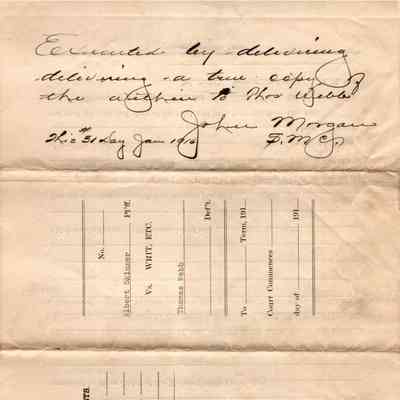 Executed by delivering
delivering a true copy of
the within to Thos Webb
This 31 Day Jan 1916
John Morgan
S.M.C.
No.
Albert Skinner Pl'ff.
Vs. WRIT, ETC.
Thomas Webb
Def't.
To Term, 191
Court Commences
day of 191